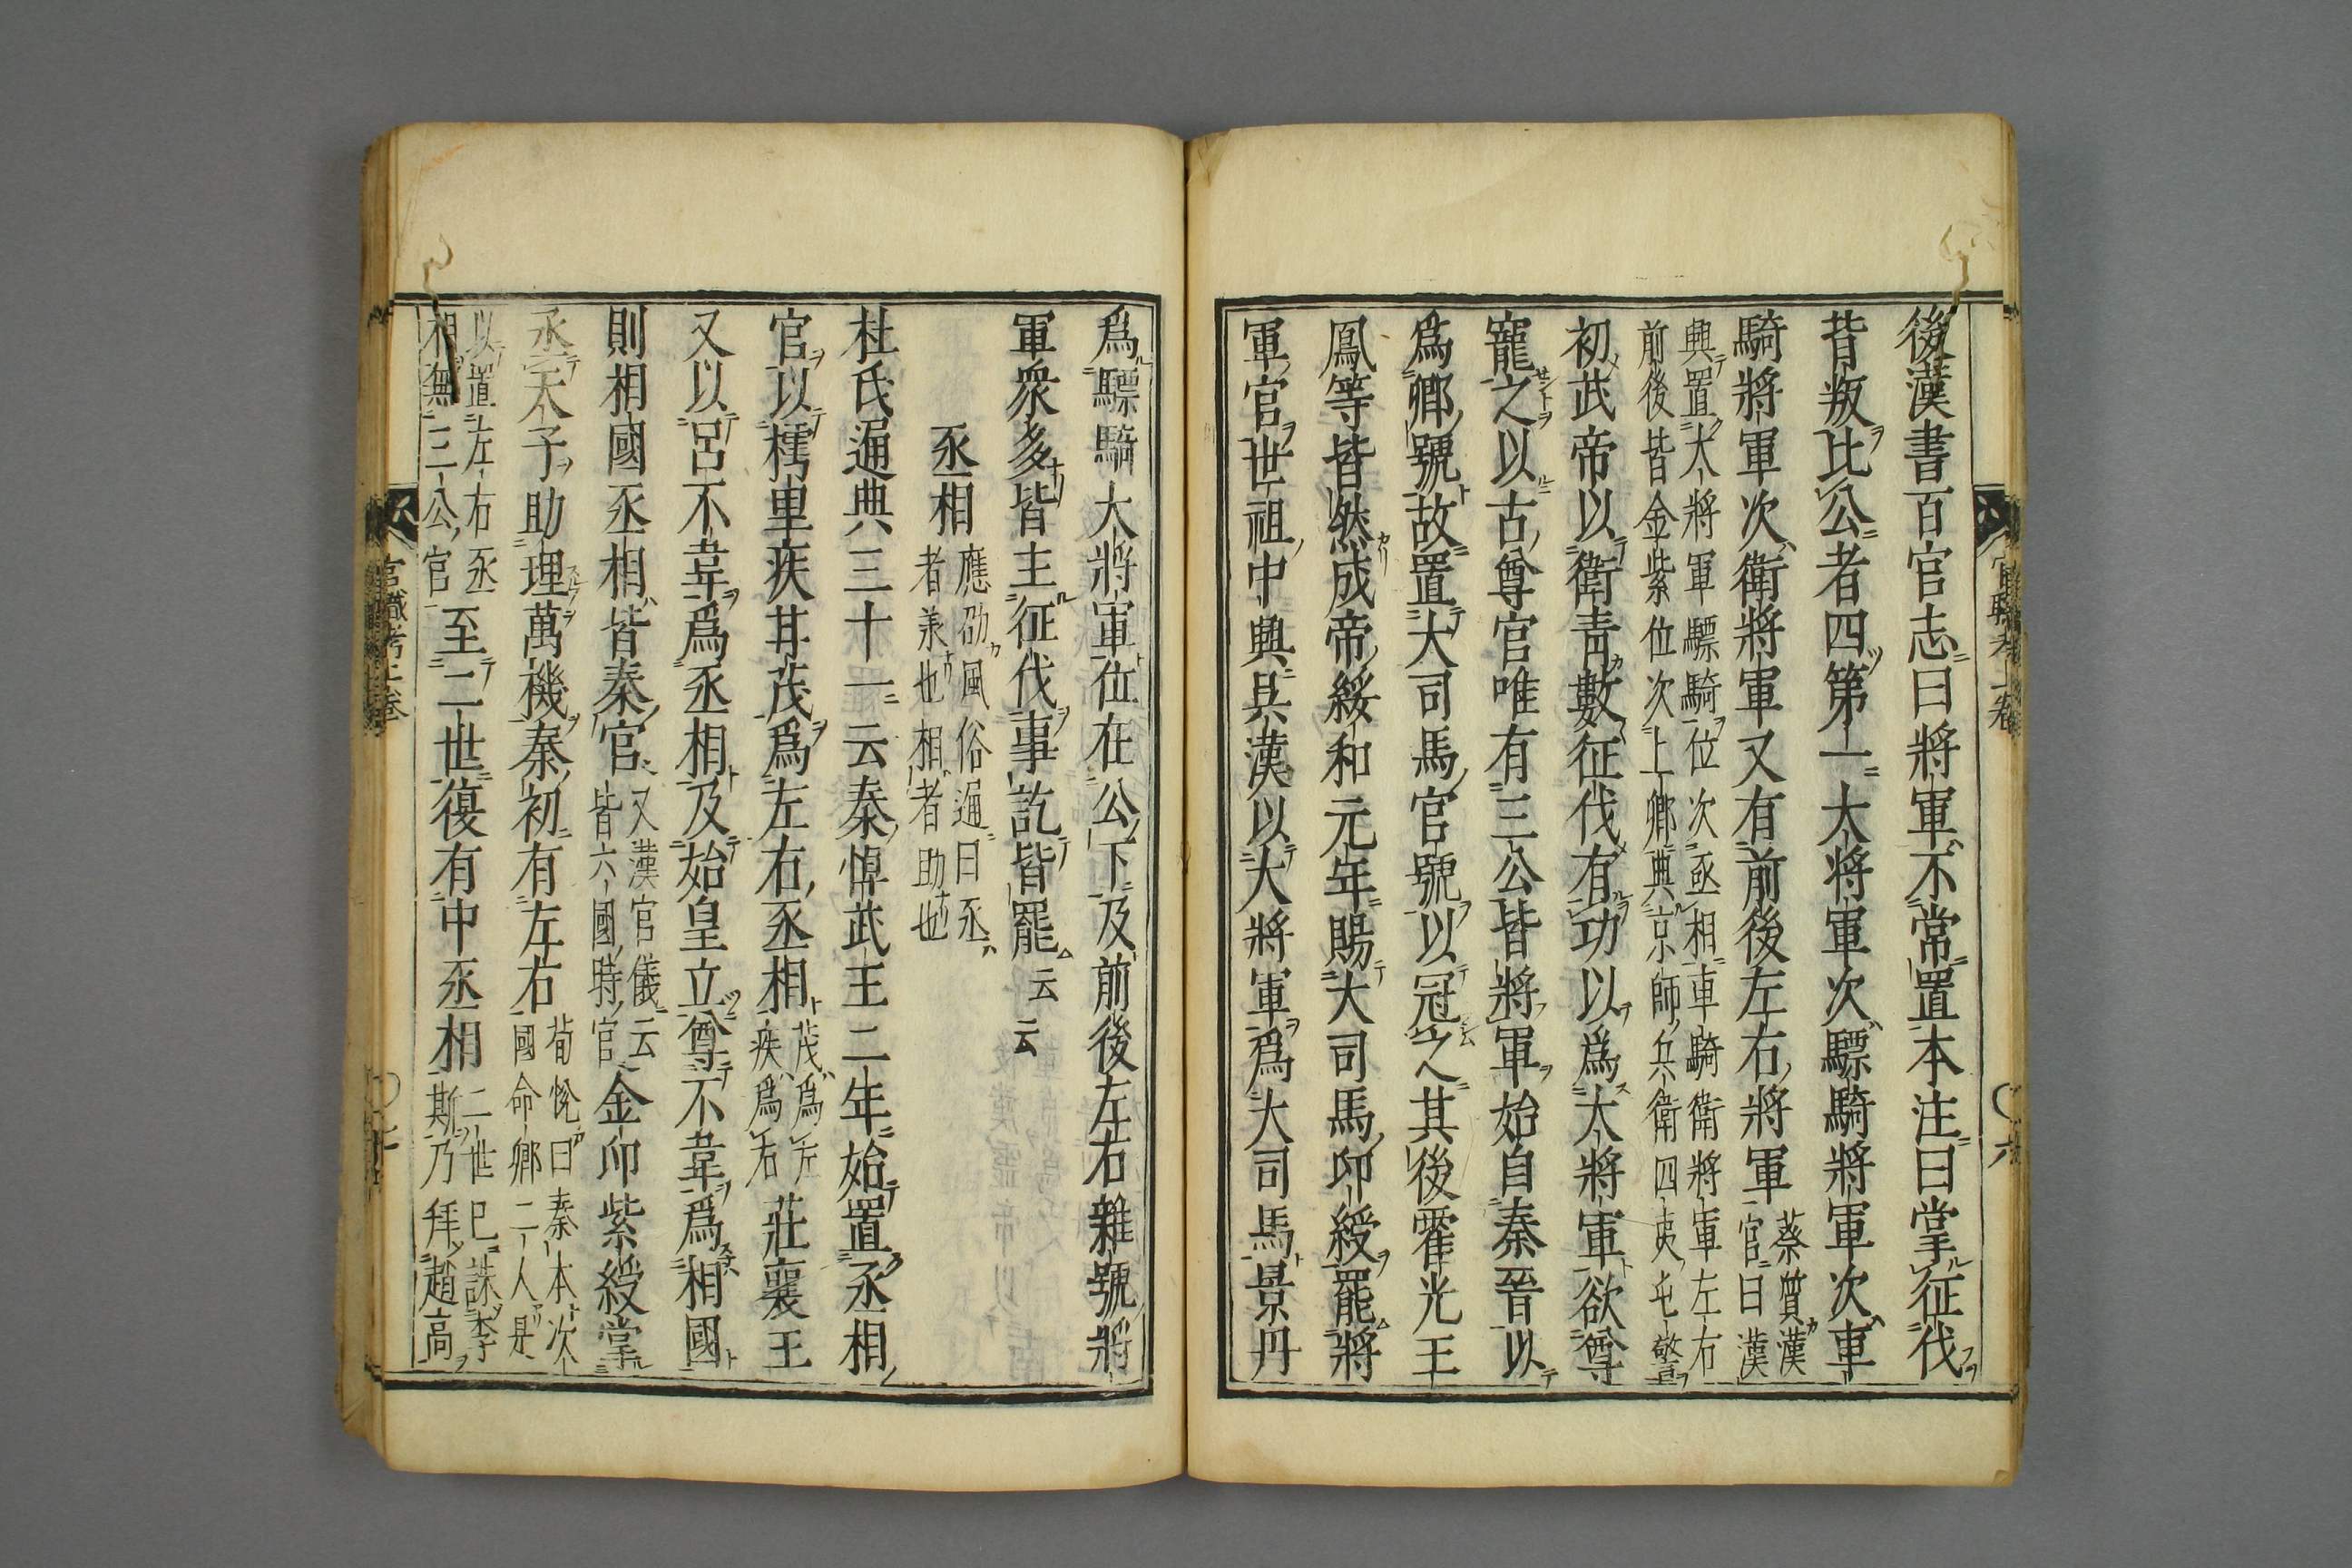 後漢書百官志曰將軍不常置本注曰掌征伐
背叛比公者四第一大將軍次驃騎將軍次車
騎將軍次衛將軍又有前後左右將軍蔡質漢官曰漢
興置大將軍驃騎位次丞相車騎衛將軍左右
前後皆金紫位次上卿典京師兵衛四夷屯警
初武帝以衛青數征伐有功以爲大將軍欲尊
寵之以古尊官唯有三公皆將軍始自秦晉以
爲卿號故置大司馬官號以冠之其後霍光王
鳳等皆然成帝綏和元年賜大司馬印綬罷將
軍官世祖中興吳漢以大將軍爲大司馬景丹
爲驃騎大將軍位在公下及前後左右雜號將
軍衆多皆主征伐事訖皆罷云云
丞相應劭風俗通曰丞者兼也相者助也
杜氏通典三十一云秦悼武王二年始置丞相
官以樗里疾甘茂爲左右丞相茂爲左疾爲右莊襄王
又以呂不韋爲丞相及始皇立尊不韋爲相國
則相國丞相皆秦官又漢官儀云皆六國時官金印紫綬掌
丞天子助理萬機秦初有左右荀悅曰秦本次國命卿二人是
以置左右丞相無三公官至二世復有中丞相二世已誅李斯乃拜趙高
官職考上卷